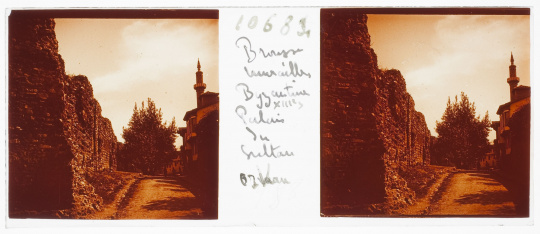 10683
Brousse
murailles
Byzantine
XIIIs
Palais
du
Sultan